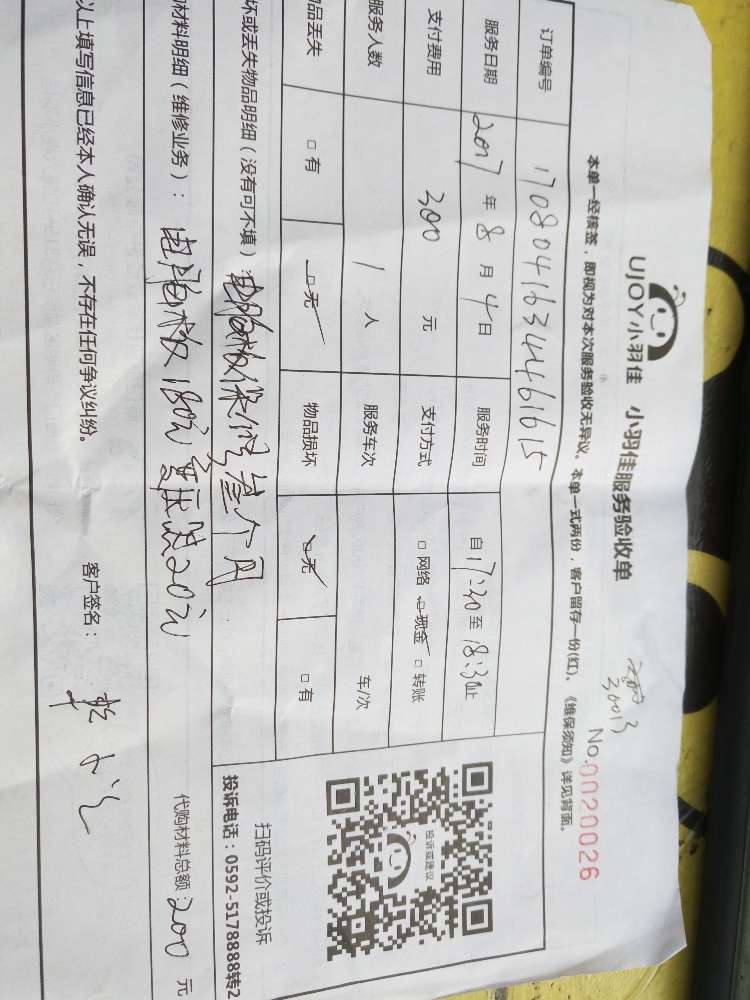 UJOY小羽佳 小羽佳服务验收单
30013
No.0020026
本单一经核签，即视为对本次服务验收无异议。本单一式两份，客户留存一份(红)。《维保须知》详见背面。
订单编号 170804163444461615
服务日期 2017 年 8 月 4 日 服务时间 自 17:30 至 18:30 止
支付费用 300 元 支付方式 □ 网络 □ 现金 □ 转账
服务人数 1 人 服务车次 车/次
物品丢失 □ 有 □ 无 物品损坏 □ 无 □ 有
投诉或建议
扫码评价或投诉
投诉电话：0592-5178888转2
坏或丢失物品明细（没有可不填）：电脑板保修叁个月
材料明细（维修业务）：电脑板180元 变压器20元
代购材料总额：200 元
以上填写信息已经本人确认无误，不存在任何争议纠纷。
客户签名：